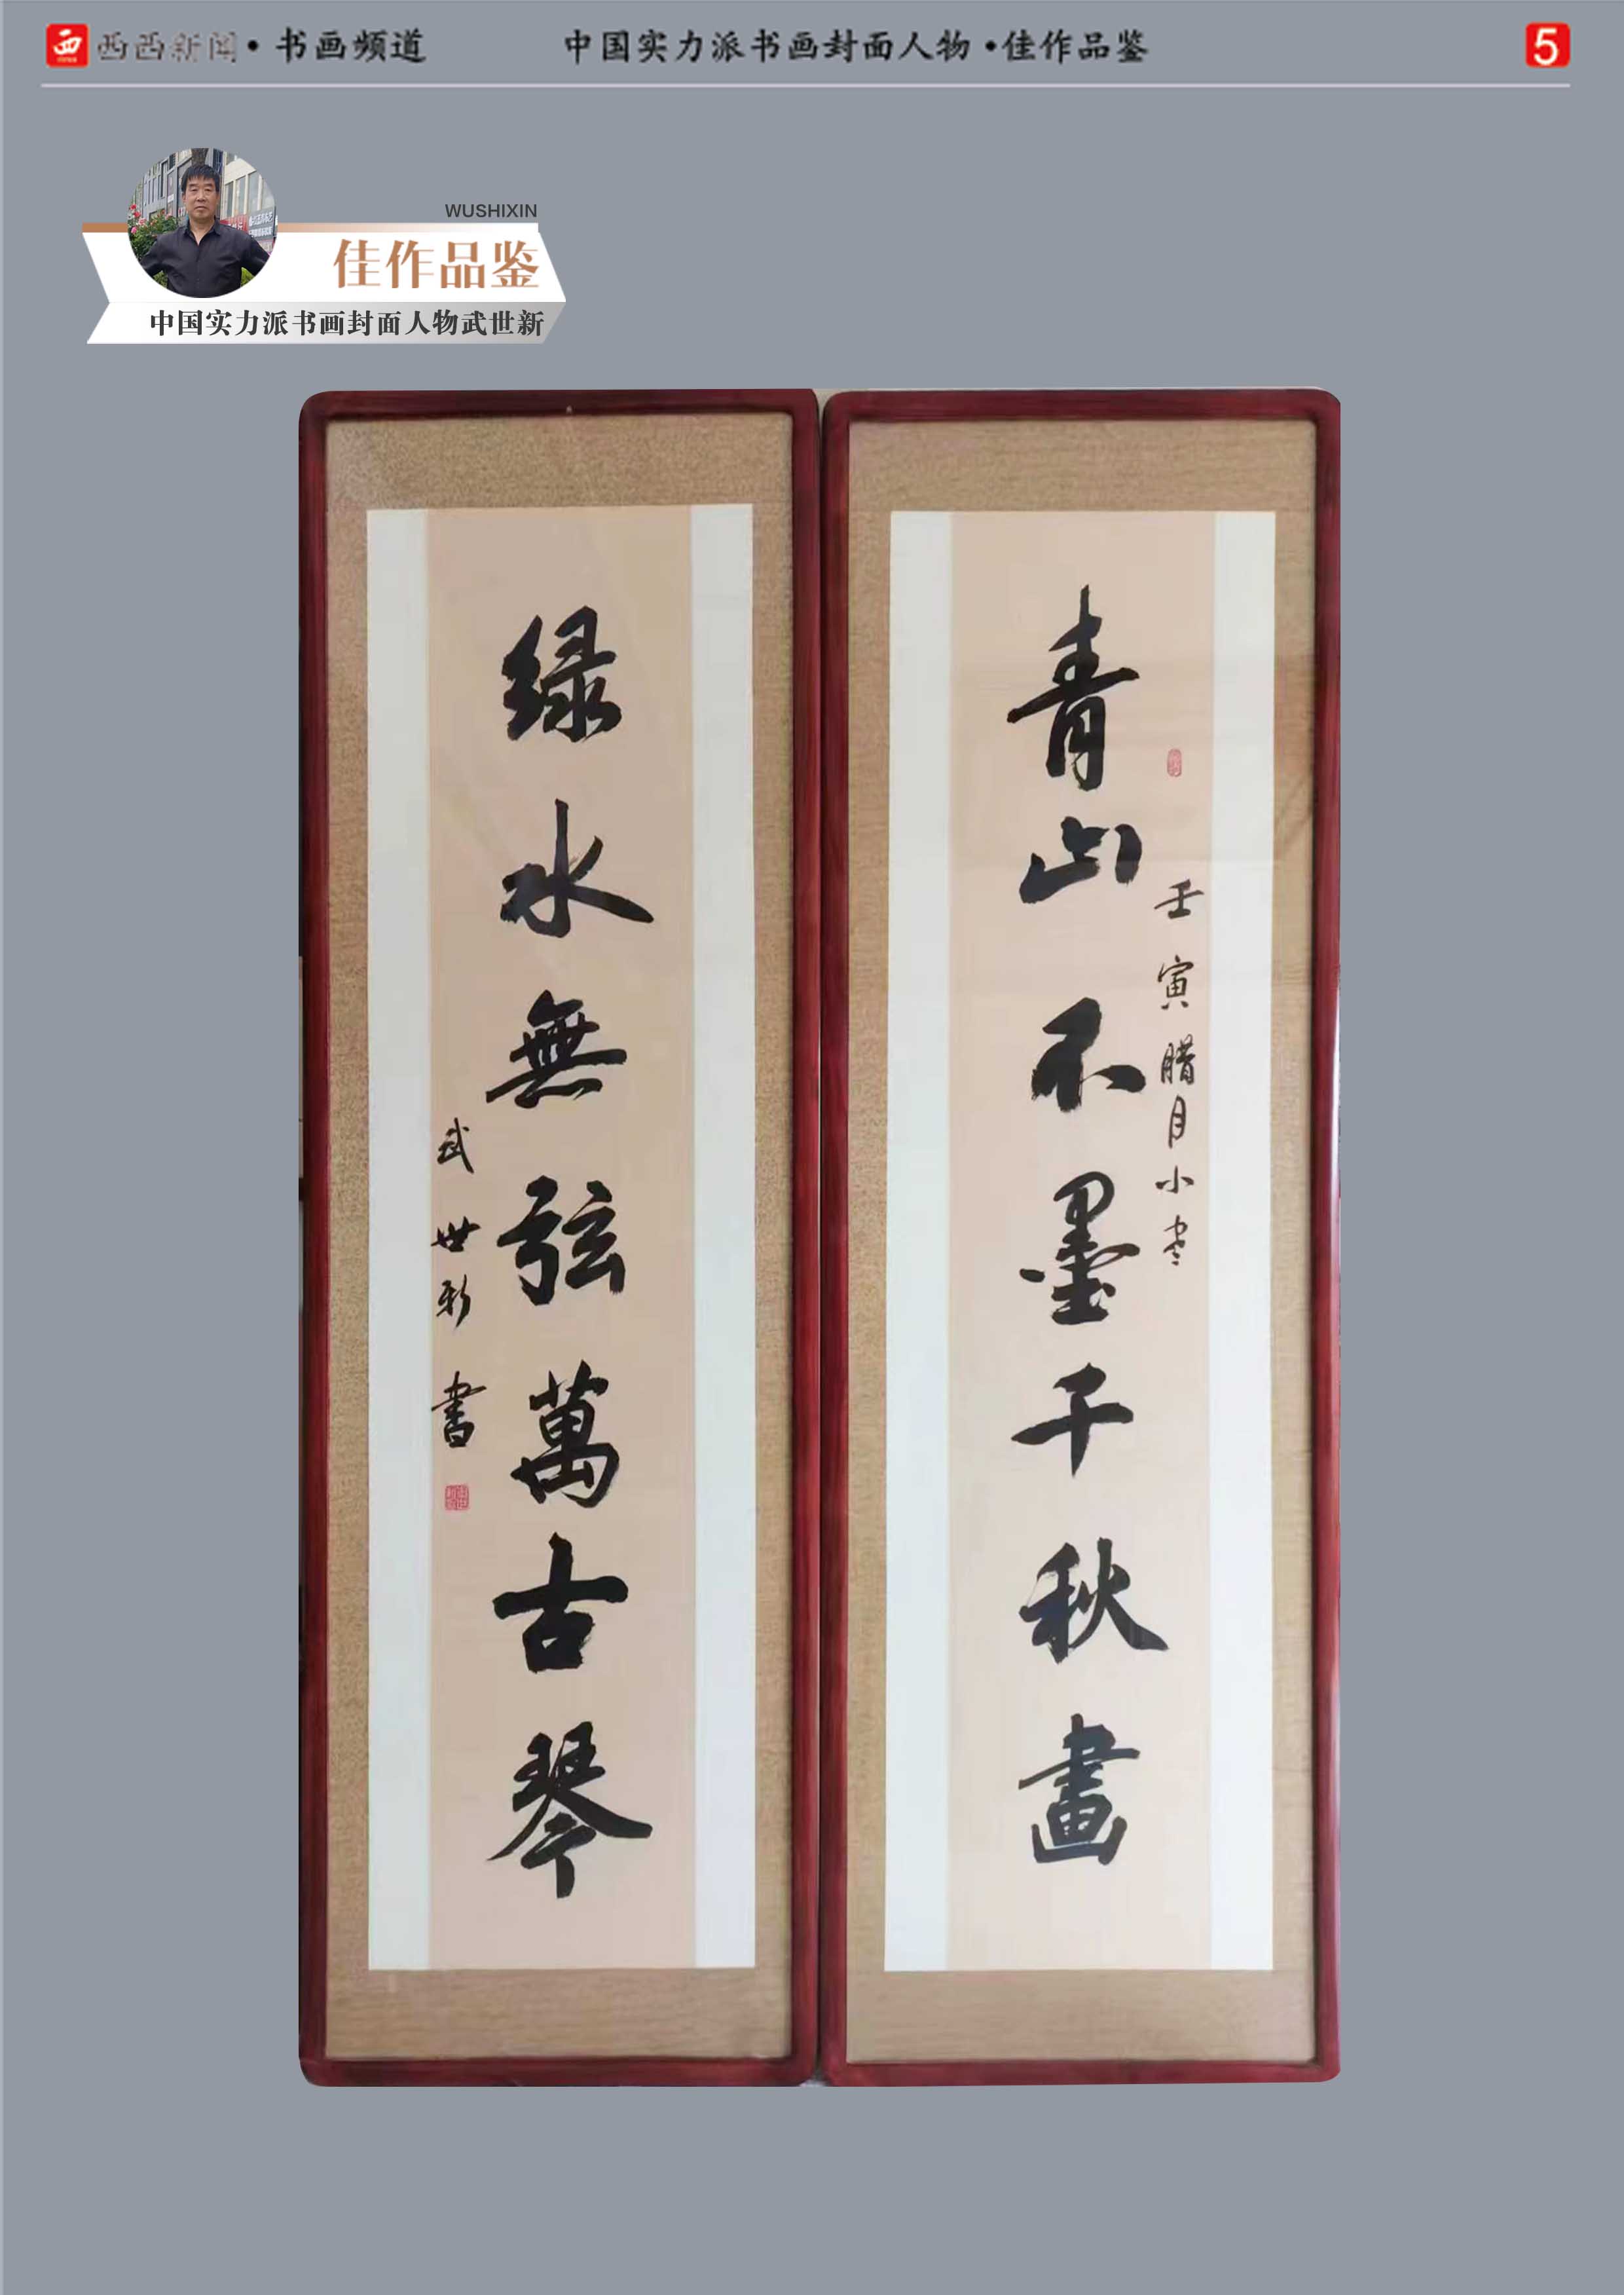 西西新闻•书画频道
中国实力派书画封面人物•佳作品鉴
5
WUSHIXIN
佳作品鉴
中国实力派书画封面人物武世新
青山不墨千秋畫
壬寅腊月小寒
绿水無弦萬古琴
武世新書